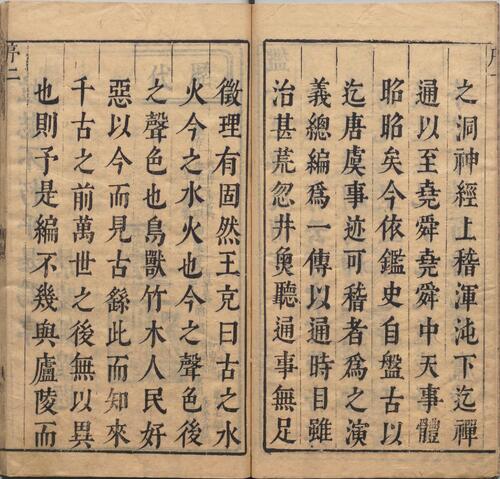 之洞神經上稽渾沌下迄禪
通以至堯舜堯舜中天事體
昭昭矣今依鑑史自盤古以
迄唐虞事迹可稽者爲之演
義總編爲一傳以通時目雖
治甚荒忽井魚聽通事無足
徵理有固然王充曰古之水
火今之水火也今之聲色後
之聲色也鳥獸竹木人民好
惡以今而見古繇此而知來
千古之前萬世之後無以異
也則予是編不幾與廬陵而
序二